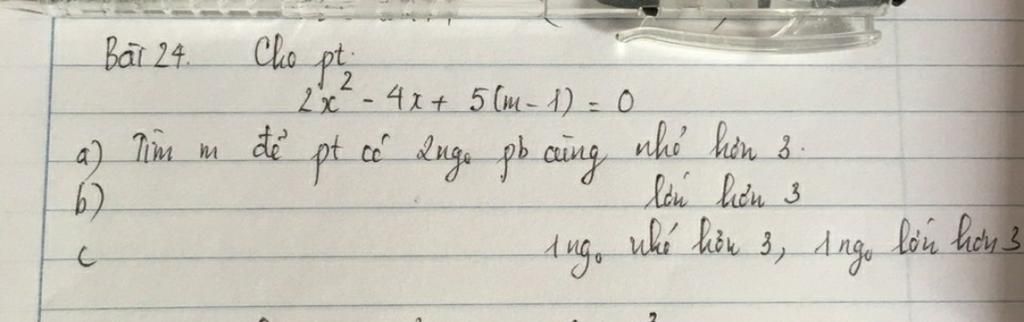 Bài 24. Cho pt.
2x² - 4x + 5(m - 1) = 0
a) Tìm m để pt có 2 ngo pb cùng nhỏ hơn 3.
b) lớn hơn 3
c 1 ngo nhỏ hơn 3, 1 ngo lớn hơn 3